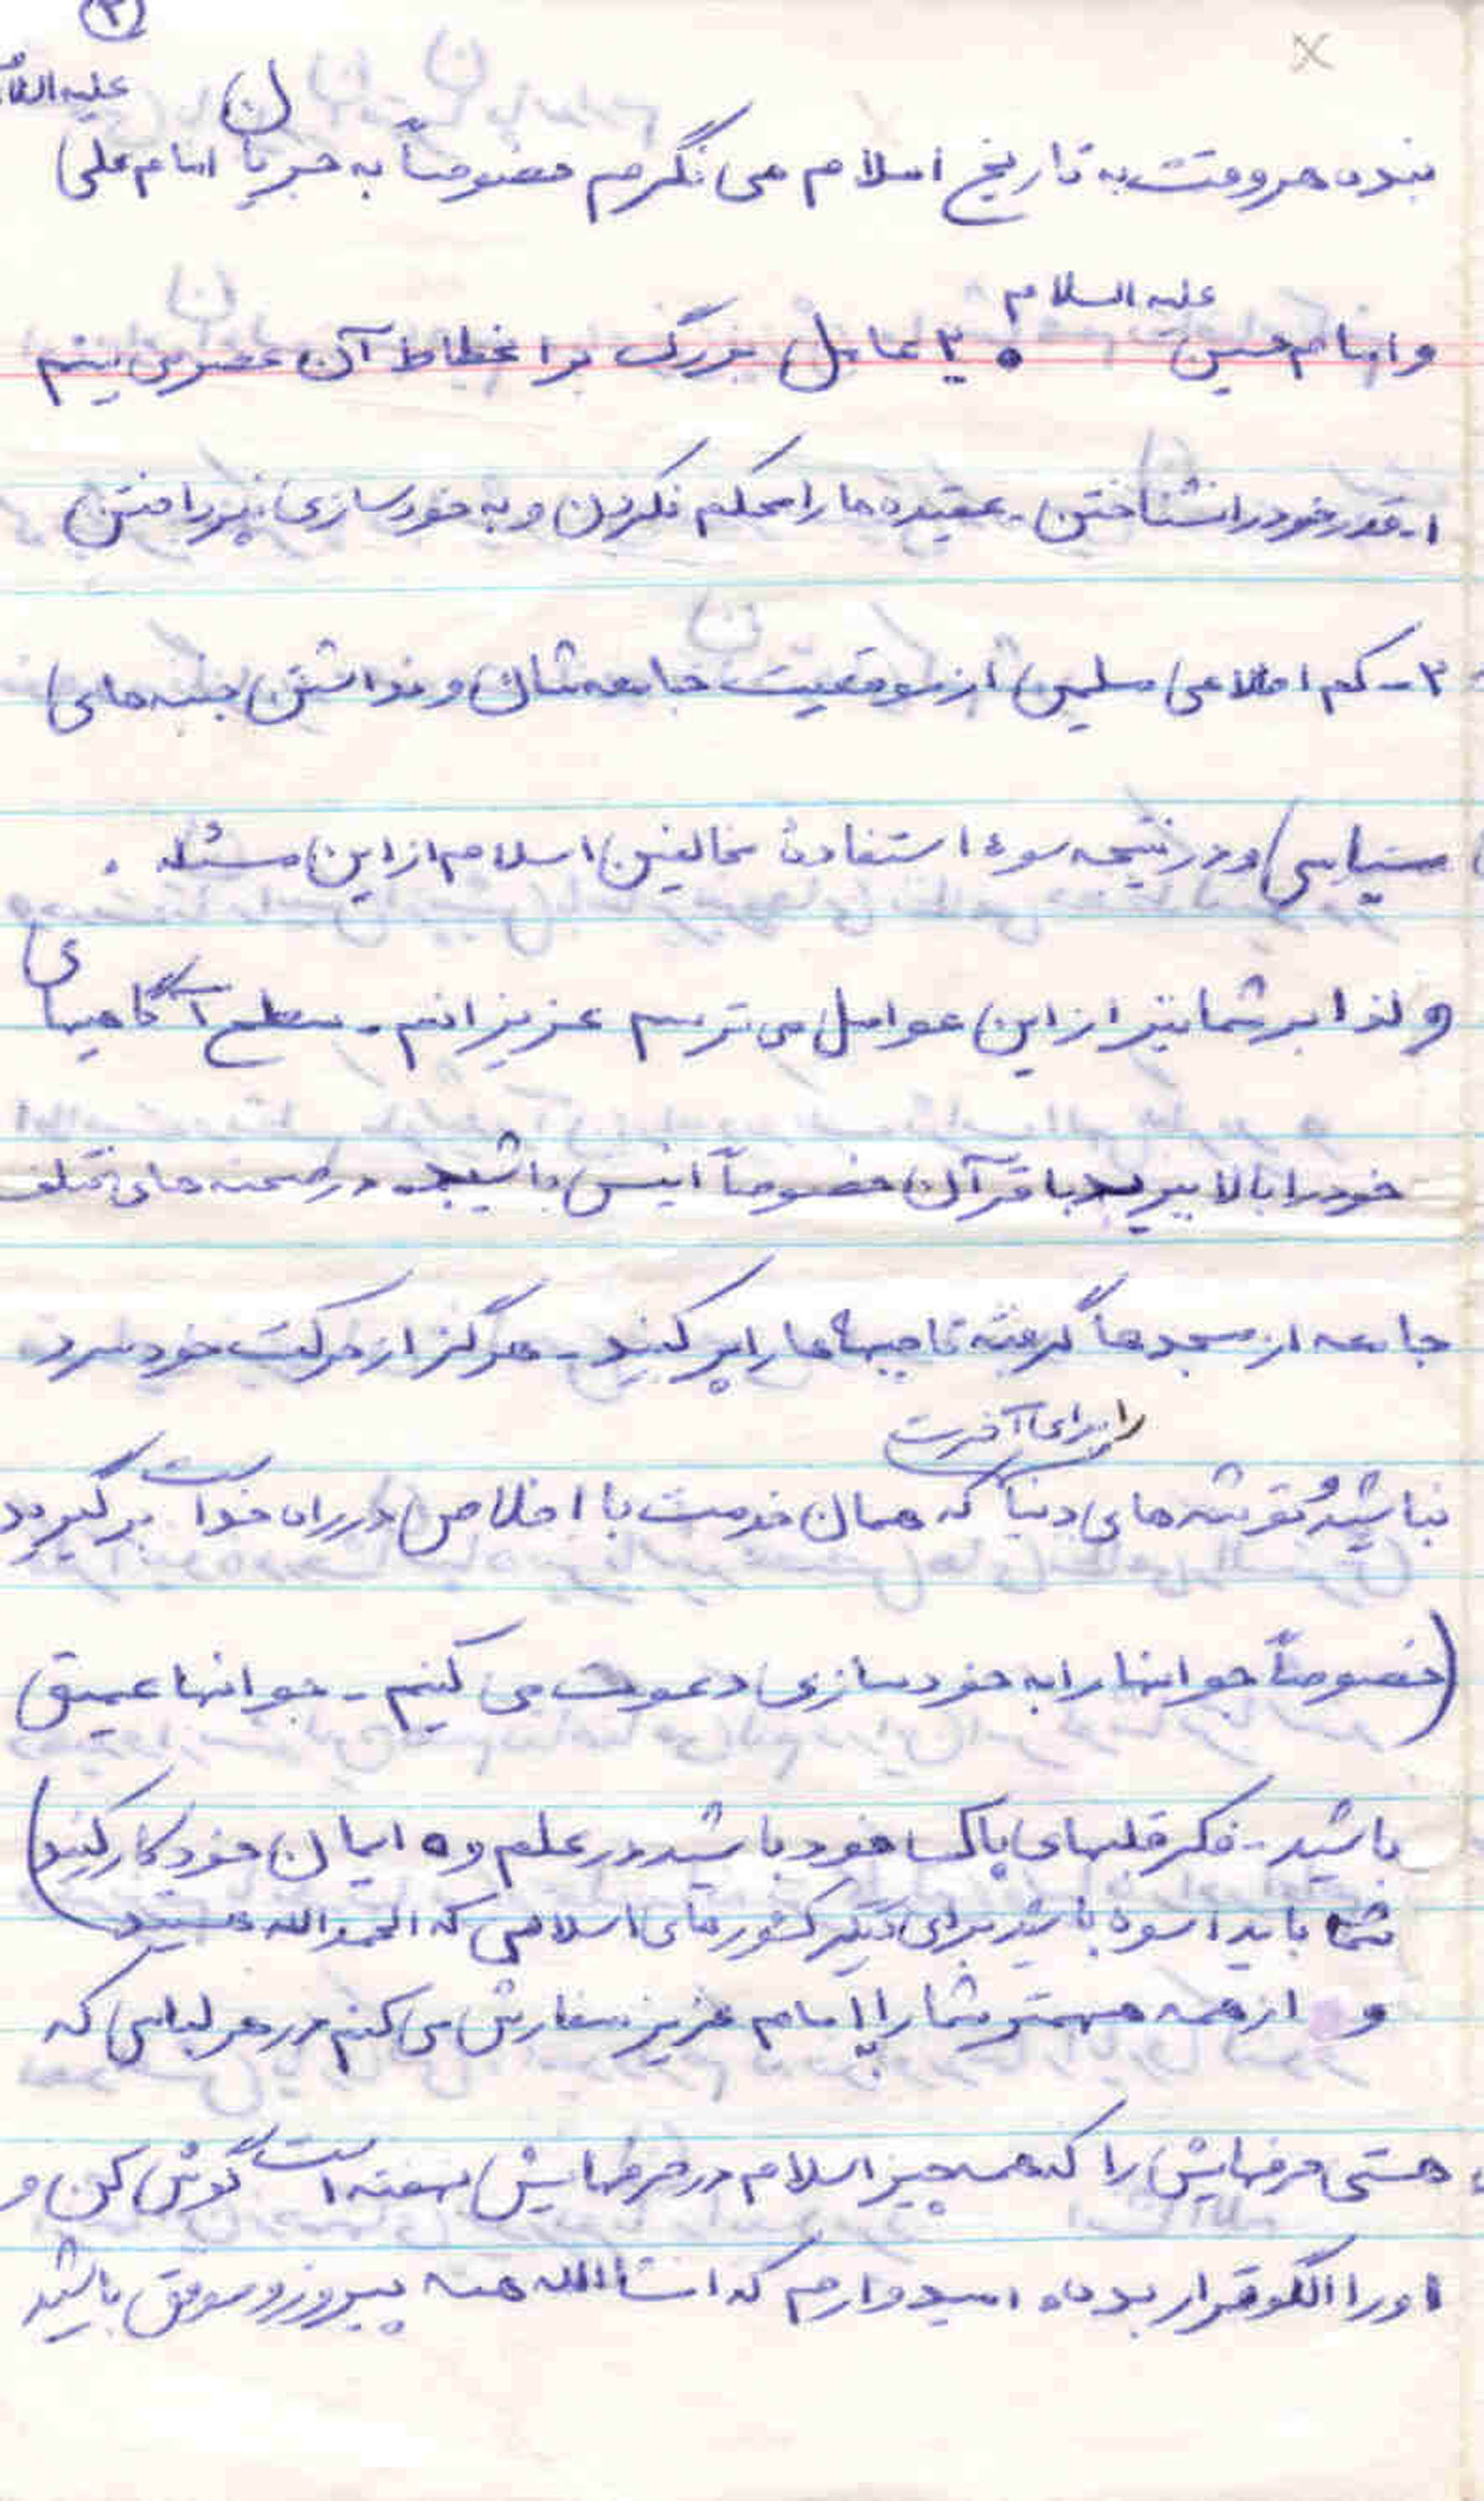 ۳
بنده هر وقت به تاریخ اسلام می نگرم خصوصاً به جریان امام علی علیه السلام
و امام حسین علیه السلام ۲ عامل بزرگ بر انحطاط آن عصر می بینم
۱- قدر خود را نشناختن - عقیده ها را محکم نکردن و به خودسازی نپرداختن
۲- کم اطلاعی مسلمین از موقعیت جامعه شان و نداشتن جنبه های
سیاسی و در نتیجه سوء استفادهٔ مخالفین اسلام از این مسئله .
و لذا بر شما نیز از این عوامل می ترسم عزیزانم - سطح آگاهیهای
خود را بالا ببرید با قرآن خصوصاً انیس باشید. در صحنه های مختلف
جامعه از مسجدها گرفته تا جبهه ها را پر کنید - هرگز از حرکت خود سرد
نباشید و توشه های دنیا را برای آخرت که همان خدمت با اخلاص در راه خداست برگیرید
(خصوصاً جوانها را به خودسازی دعوت می کنیم - جوانها عمیق
باشید - فکر قلبهای پاک خود باشید در علم و ایمان خود کار کنید)
شما باید اسوه باشید برای دیگر کشورهای اسلامی که الحمدالله هستید
و از همه مهمتر شما را با امام عزیز سفارش می کنم در هر لباسی که
هستی حرفهایش را که همه چیز اسلام در حرفهایش نهفته است گوش کن و
او را الگو قرار بده امیدوارم که انشاالله همه پیروز و موفق باشید